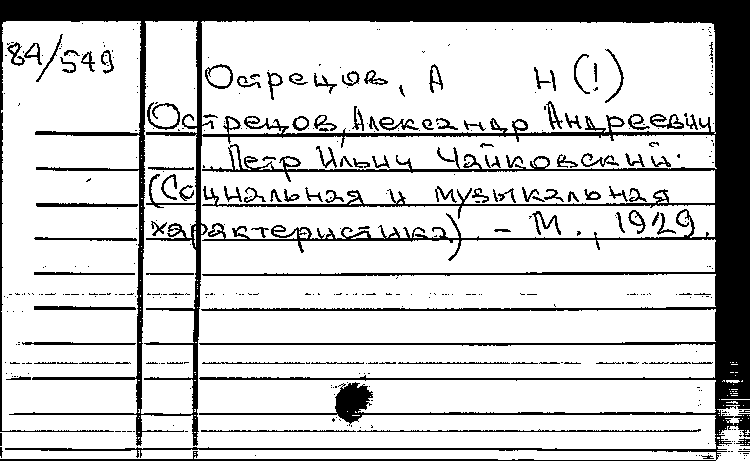 84/549
Острецов, А Н (!)
Острецов, Александр Андреевич
Петр Ильич Чайковский.
(Социальная и музыкальная
характеристика) - М., 1929.